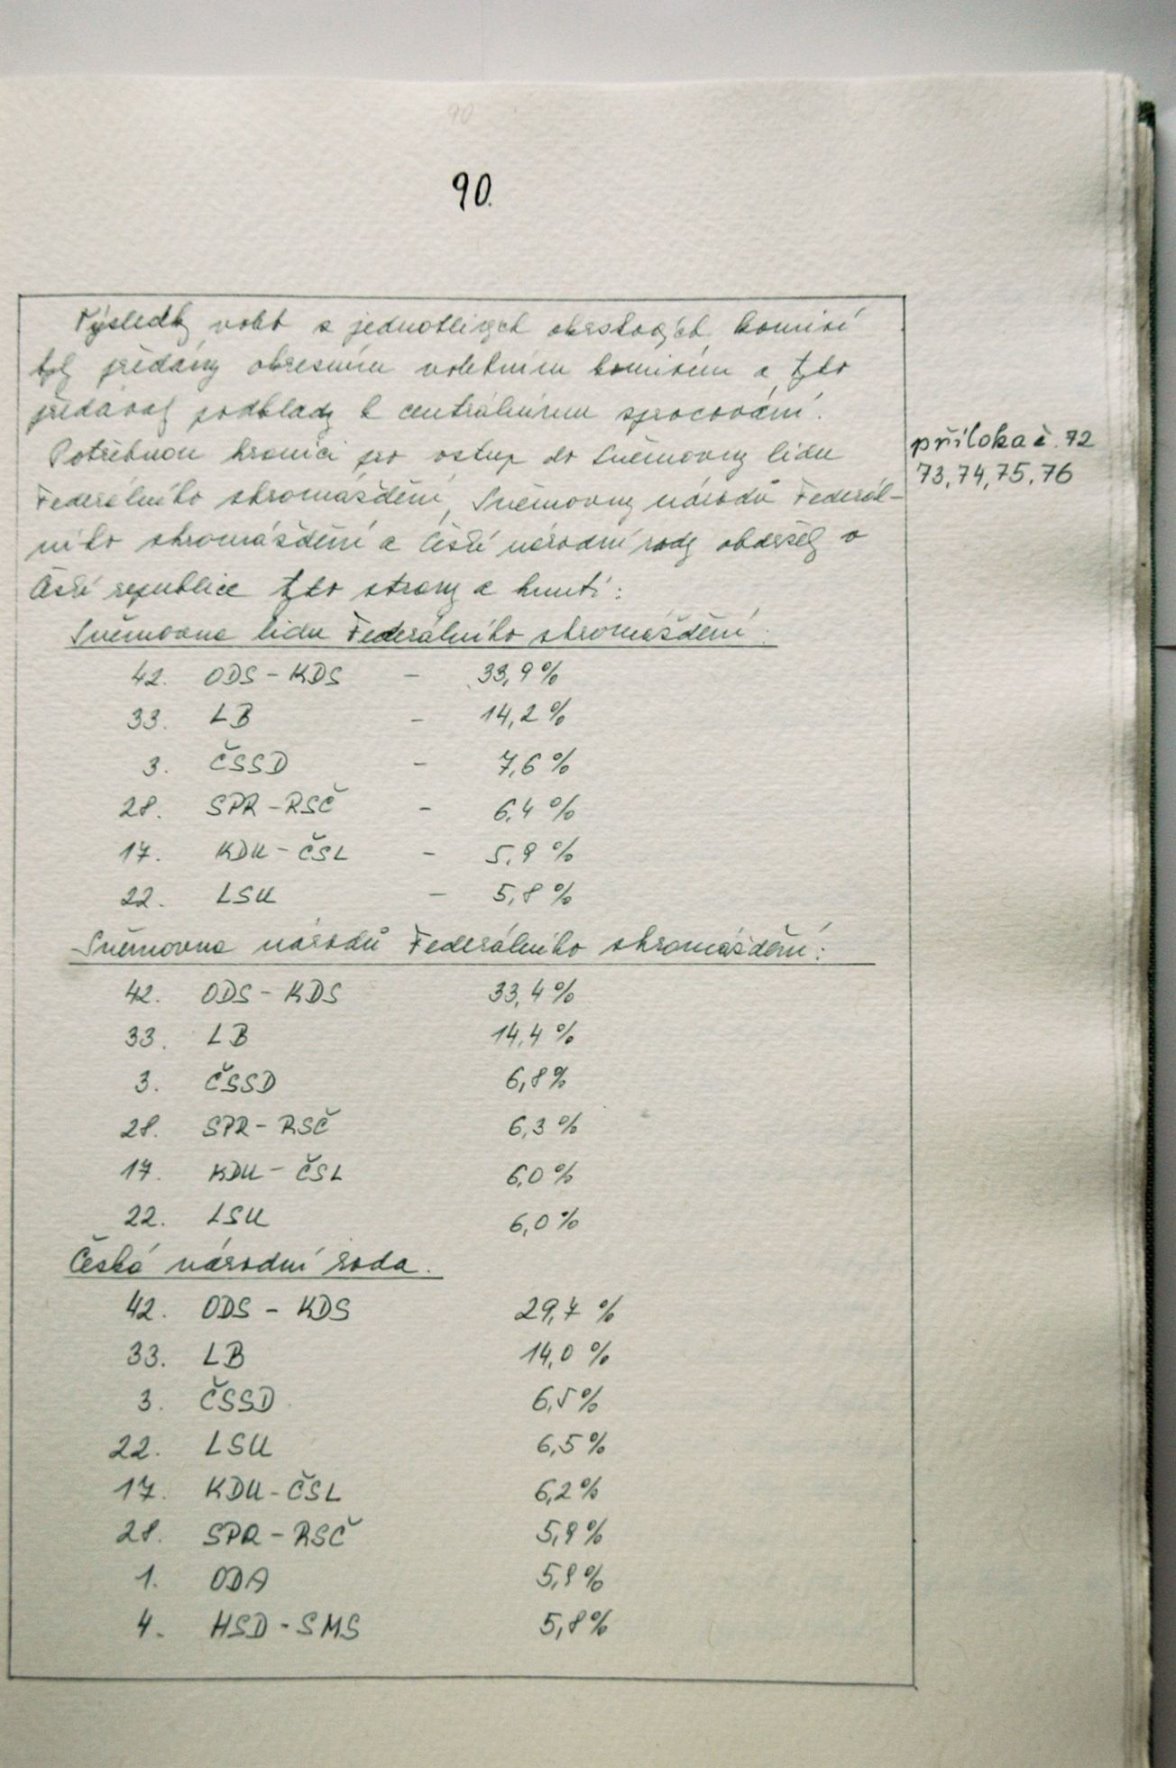 90.
Výsledky voleb z jednotlivých okrskových komisí
byly předány okresním volebním komisím a tyto
předávaly podklady k centrálnímu zpracování.
Potřebnou hranici pro vstup do Sněmovny lidu
Federálního shromáždění, Sněmovny národů Federál-
ního shromáždění a České národní rady obdržely v
České republice tyto strany a hnutí:
příloha č. 72
73, 74, 75, 76
Sněmovna lidu Federálního shromáždění:
42. ODS - KDS - 33,9 %
33. LB - 14,2 %
3. ČSSD - 7,6 %
28. SPR - RSČ - 6,4 %
17. KDU - ČSL - 5,9 %
22. LSU - 5,8 %
Sněmovna národů Federálního shromáždění:
42. ODS - KDS 33,4 %
33. LB 14,4 %
3. ČSSD 6,8 %
28. SPR - RSČ 6,3 %
17. KDU - ČSL 6,0 %
22. LSU 6,0 %
Česká národní rada.
42. ODS - KDS 29,7 %
33. LB 14,0 %
3. ČSSD 6,5 %
22. LSU 6,5 %
17. KDU - ČSL 6,2 %
28. SPR - RSČ 5,9 %
1. ODA 5,9 %
4. HSD - SMS 5,8 %